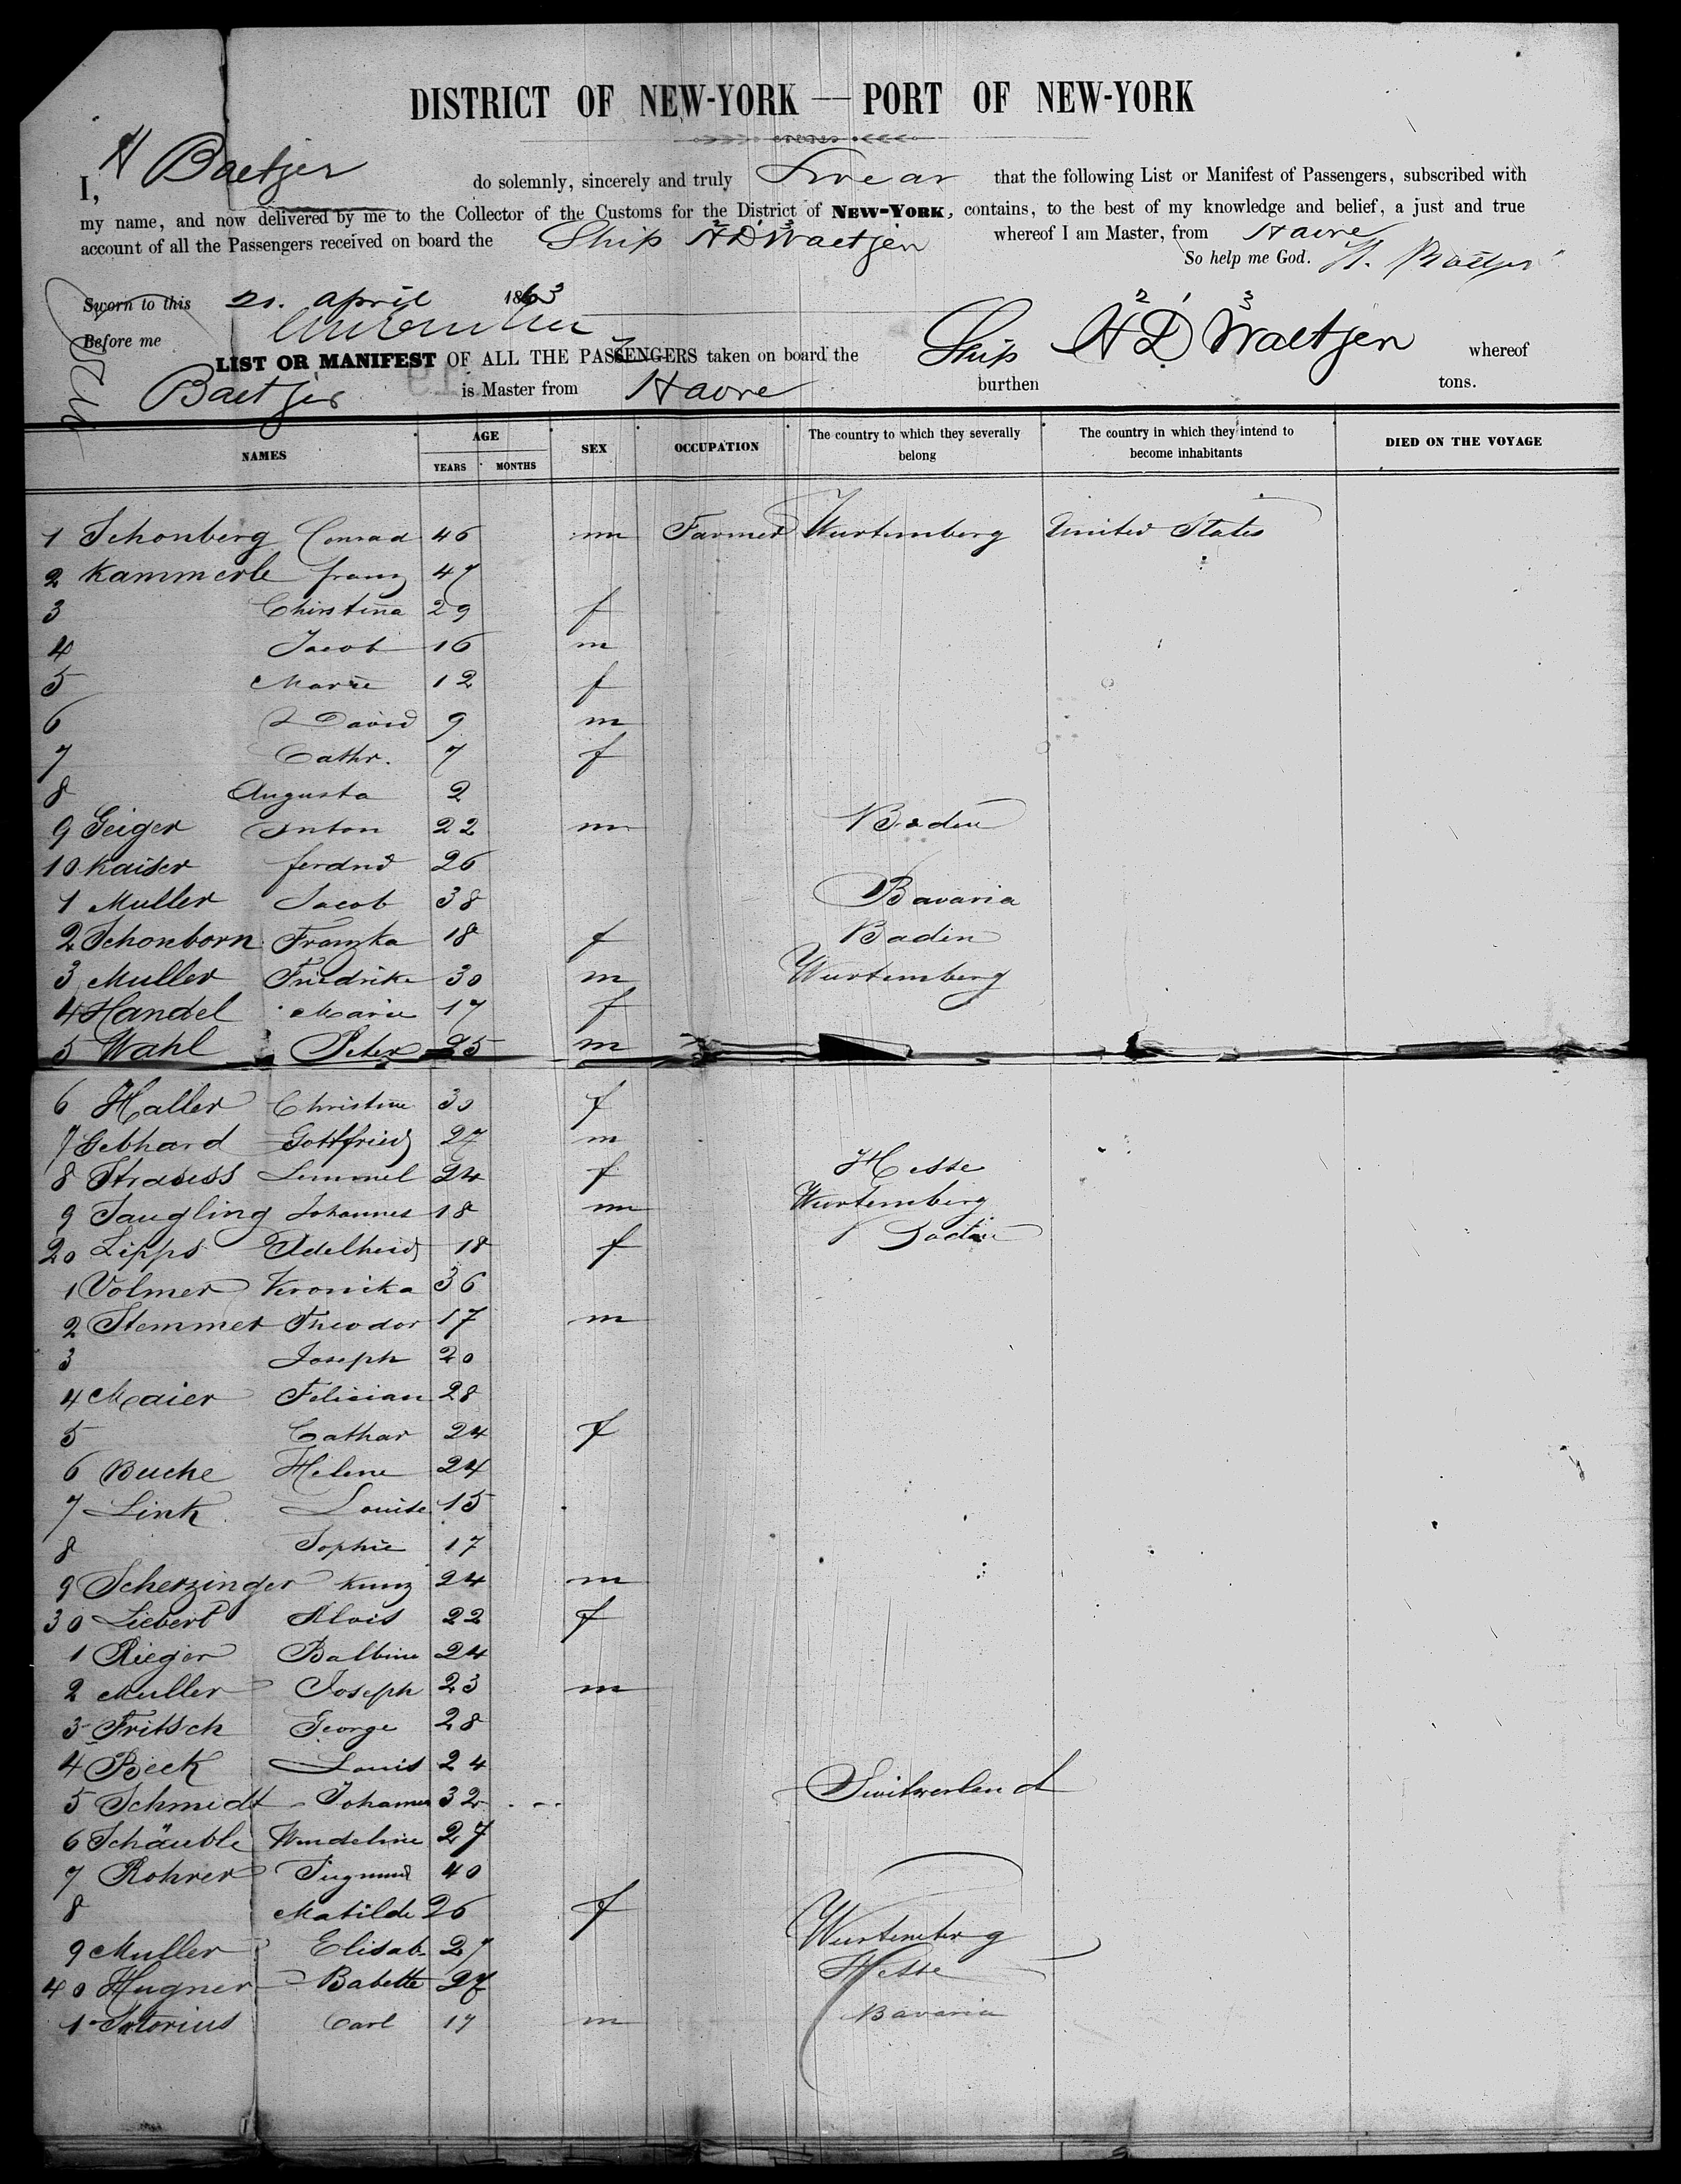 DISTRICT OF NEW-YORK — PORT OF NEW-YORK
I, H Baetjer do solemnly, sincerely and truly Swear that the following List or Manifest of Passengers, subscribed with
my name, and now delivered by me to the Collector of the Customs for the District of NEW-YORK, contains, to the best of my knowledge and belief, a just and true
account of all the Passengers received on board the Ship H D Waetjen whereof I am Master, from Havre
So help me God. H. Baetjer
Sworn to this 21. April 1863
Before me
LIST OR MANIFEST OF ALL THE PASSENGERS taken on board the Ship H D Waetjen whereof
Baetjer is Master from Havre burthen tons.
NAMES AGE YEARS MONTHS SEX OCCUPATION The country to which they severally belong The country in which they intend to become inhabitants DIED ON THE VOYAGE
1 Schonberg Conrad 46 m Farmer Wurtemberg United States
2 Kammerle franz 47
3 Christina 29 f
4 Jacob 16 m
5 Marie 12 f
6 David 9 m
7 Cathr. 7 f
8 Augusta 2
9 Geiger Anton 22 m Baden
10 Kaiser ferdnd 26
1 Muller Jacob 38 Bavaria
2 Schonborn Franzka 18 f Baden
3 Muller Friedrike 30 m Wurtemberg
4 Handel Marie 17 f
5 Wahl Peter 25 m
6 Haller Christine 30 f
7 Gebhard Gottfried 27 m
8 Strauss Lemmel 24 f Hesse
9 Saugling Johannes 18 m Wurtemberg
20 Lipps Adelheid 18 f Baden
1 Volmer Veronika 36
2 Stemmer Theodor 17 m
3 Joseph 20
4 Maier Felician 28
5 Cathar 24 f
6 Buche Helene 24
7 Link Louise 15
8 Sophie 17
9 Scherzinger Kunz 24 m
30 Liebert Alois 22 f
1 Rieger Balbine 24
2 Muller Joseph 23 m
3 Fritsch George 28
4 Beck Louis 24
5 Schmidt Johannes 32 Switzerland
6 Schäuble Wendeline 27
7 Rohrer Siegmund 40
8 Matilde 26 f Wurtemberg
9 Muller Elisab. 27 Hesse
40 Hugner Babette 27
1 Sartorius Carl 17 m Bavaria